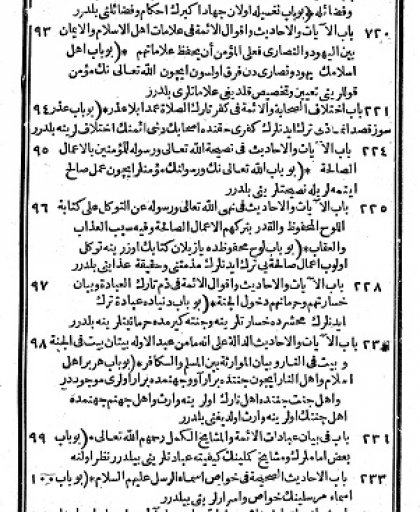 وفضائله ﴿بو باب تفصيله اولان جهاد اكبرك احكام وفضائلنی بلدرر
٧٢٠ باب الآيات والاحاديث واقوال الائمة فی علامات اهل الاسلام والايمان ٩٣
بين اليهود والنصارى فعلى المؤمن أن يحفظ علاماتهم ﴿بو باب اهل
اسلامك يهود ونصارى دن فرق اولسون ايچون الله تعالى نك مؤمن
قوللرينی تعيين وتخصيص قلديغی علاماتلری بلدرر
٢٢١ باب اختلاف الصحابة والائمة فی كفر تارك الصلاة عمدا بلا عذر ﴿بو باب عذر ٩٤
سز قصدا نمازی ترك ايدنلرك كفری حقنده اصحابك ودخی ائمه نك اختلافلرينه بلدرر
٢٢٤ باب الآيات والاحاديث فی نصيحة الله تعالى ورسوله للمؤمنين بالاعمال ٩٥
الصالحة ﴿بو باب الله تعالى نك ورسولنك مؤمنلر ايچون عمل صالح
ايتمه لريله نصيحتلرينی بلدرر
٢٢٥ باب الآيات والاحاديث فی نهى الله تعالى ورسوله عن التوكل على كتابة ٩٦
اللوح المحفوظ والقدر بتركهم الاعمال الصالحة وفيه سبب العذاب
والعقاب ﴿بو باب لوح محفوظده يازيلان كتابك اوزرينه توكل
اولوب اعمال صالحه يی ترك ايدنلرك مذمتنی وحقيقة عذابنی بلدرر
٢٢٨ باب الآيات والاحاديث واقوال الائمة فی ذم تارك العبادة وبيان ٩٧
خسارتهم وحرمانهم دخول الجنة ﴿بو باب دنياده عبادة ترك
ايدنلرك محشرده خسارتلرينه وجنته كيرمه ده حرمانيتلرينه بلدرر
٢٣٠ باب الآيات والاحاديث الدالة على انه ما من عبد الا وله بيتان بيت فی الجنة ٩٨
وبيت فی النار وبيان الموارثة بين المسلم والكافر ﴿بو باب هر بر اهل
اسلام واهل النار ايچون جنتده برار آو وجهنمده برار اولری موجود در
واهل جنت جنتده اهل نارك اولرينه وارث واهل جهنم جهنمده
اهل جنتك اولرينه وارث اولديغنی بلدرر
٢٣١ باب فی بيان عبادات الائمة والمشايخ الكمل رحمهم الله تعالى ﴿بو باب ٩٩
بعض اماملرك ومشايخ كملينك كيفيته عبادتلرينی بيلدرر نظر اولنه
٢٣٣ باب الاحاديث الصحيحة فی خواص اسماء الرسل عليهم السلام ﴿بو باب ١٠٠
اسماء مرسلينك خواص واسرارلرينی بيلدرر